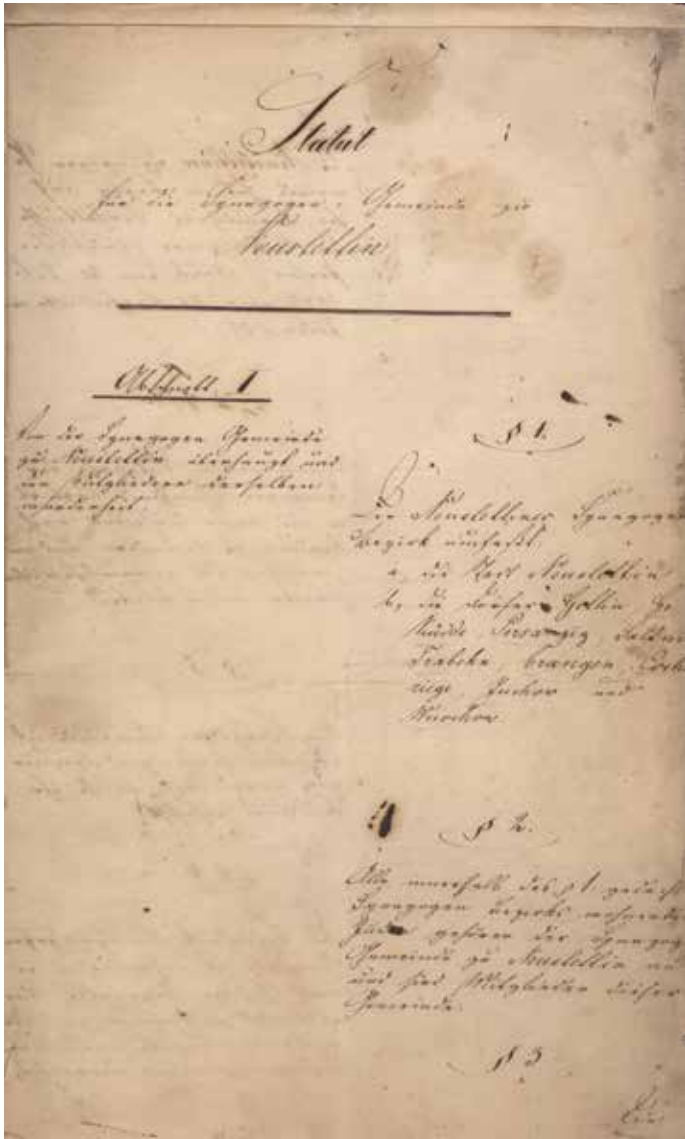 Statut
für die Synagogen-Gemeinde zu
Neustettin
Abschnitt 1
Von der Synagogen Gemeinde
zu Neustettin überhaupt und
den Mitgliedern derselben
insonderheit
§ 1.
Die Neustettiner Synagogen
Bezirk umfaßt
a, die Stadt Neustettin
b, die Dörfer
Küdde, Persanzig
und
§ 2.
Alle innerhalb des § 1. gedacht
Synagogen Bezirks wohnende
Juden gehören der Synagog
Gemeinde zu Neustettin an
und sind Mitglieder dieser
Gemeinde.
§ 3